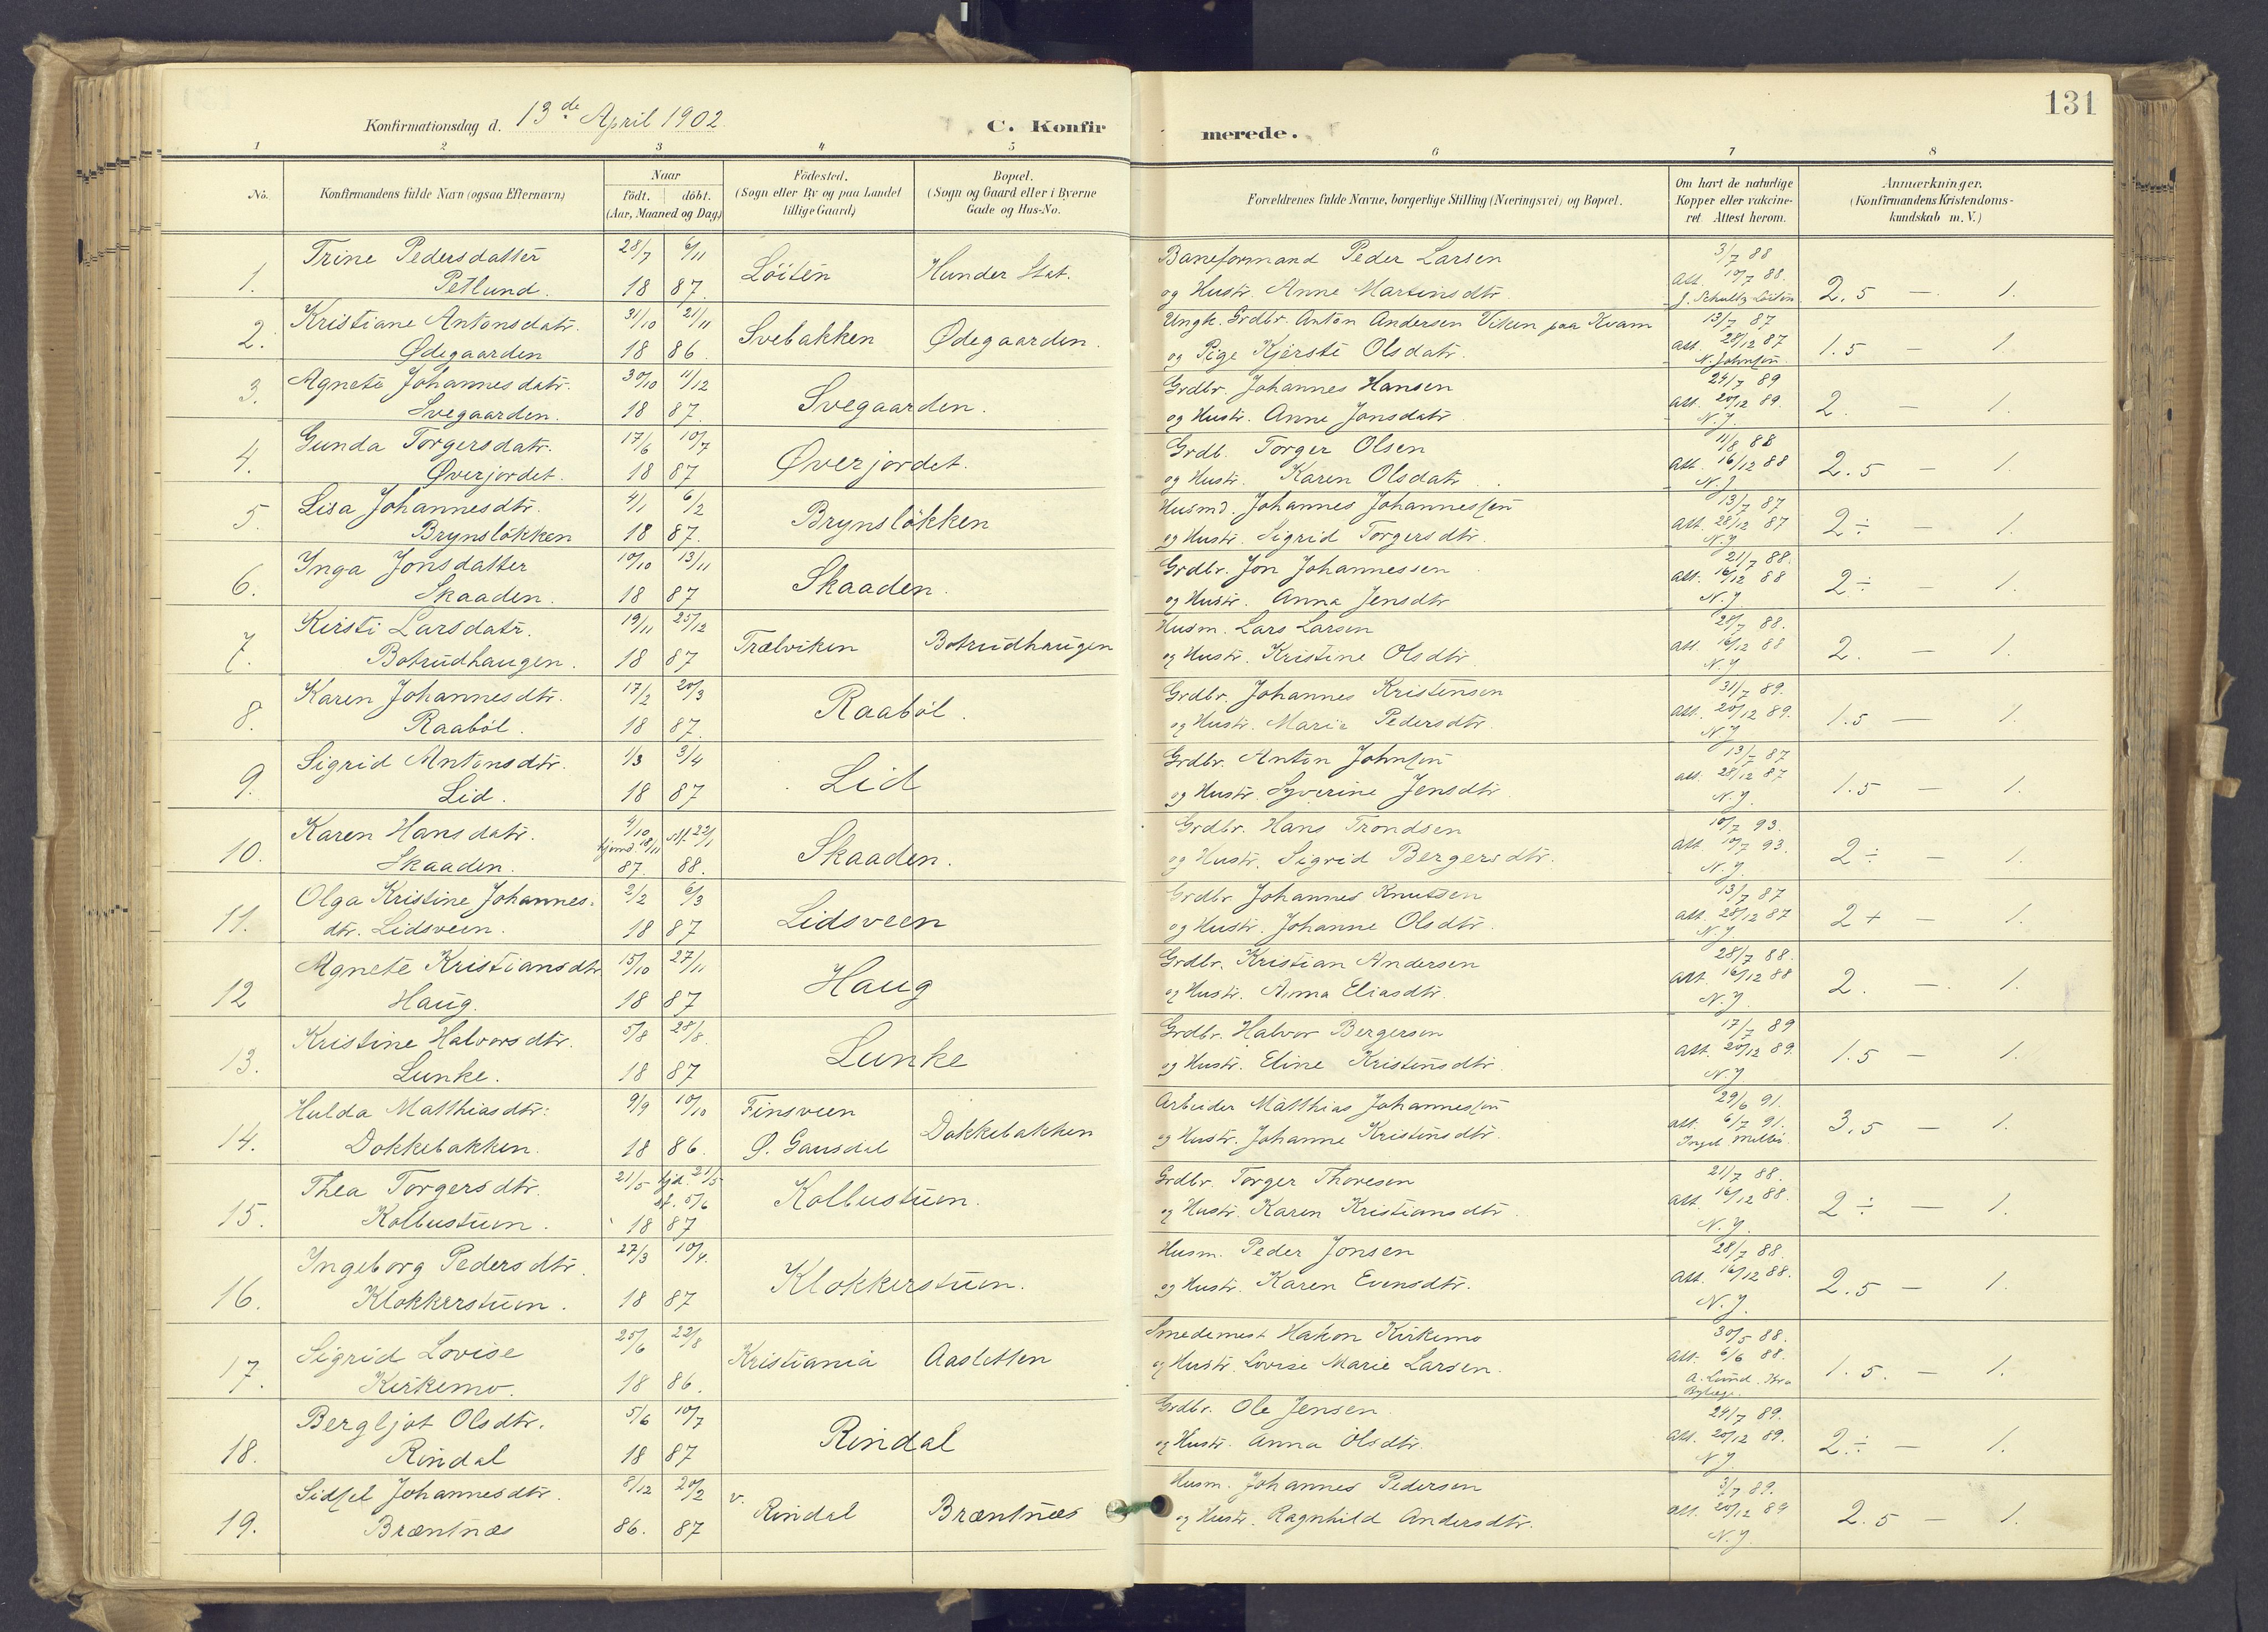 131
Konfirmationsdag d. 13de April 1902
C. Konfir merede.
1 2 3 4 5 6 7 8
No. Konfirmandens fulde Navn (ogsaa Efternavn) Naar født. døbt. (Aar, Maaned og Dag) Födested. (Sogn eller By og paa Landet tillige Gaard) Bopæl. (Sogn og Gaard eller i Byerne Gade og Hus-No. Forældrenes fulde Navne, borgerlige Stilling (Næringsvei) og Bopæl. Om havt de naturlige Kopper eller vakcineret. Attest herom. Anmærkninger. (Konfirmandens Kristendomskundskab m. V.)
Trine Pedersdatter 28/7 6/11 Baneformand Peder Larsen 3/7 88
1. Petlund. 18 87. Löiten Hunder Stat. og Hustr. Anne Martinsdtr. Att. 10/7 88. J. Schultz Löiten 2.5 — 1.
Kristiane Antonsdatr. 31/10 21/11 Ungk. Grdbr. Anton Andersen Viken paa Kvam 13/7 87
2. Ødegaarden 18 86. Svebakken Ødegaarden. og Pige Kjersti Olsdatr. Att. 28/12 87 N. Johnsen 1.5 — 1.
Agnete Johannesdatr. 30/10 11/12 Grdbr. Johannes Hansen 24/7 89
3. Svegaarden. 18 87. Svegaarden. og Hustr. Anne Jonsdatr Att. 20/12 89. N. J. 2. — 1.
Gunda Torgersdatr. 17/6 10/7 Grdb. Torger Olsen 11/8 88
4. Øverjordet. 18 87 Øverjordet. og Hustr. Karen Olsdatr. Att. 16/12 88 N. J 2.5 — 1.
Lisa Johannesdtr. 4/1 6/2 Husmd. Johannes Johannessen 13/7 87
5. Brynslökken 18 87. Brynslökken og Hustr. Sigrid Torgersdtr. Att. 28/12 87 N. J 2 ÷ — 1.
Inga Jonsdatter 10/10 13/11 Grdbr. Jon Johannessen 21/7 88.
6. Skaaden. 18 87 Skaaden. og Hustr. Anna Jensdtr Att. 16/12 88 N. J 2 ÷ — 1.
Kersti Larsdatr. 19/11 25/12 Husm. Lars Larsen 28/7 88.
7. Botrudhaugen. 18 87 Trælviken Botrudhaugen og Hustr. Kristine Olsdtr Att. 16/12 88 N. J 2. — 1.
Karen Johannesdtr. 17/2 20/3 Grdbr. Johannes Kristensen 31/7 89.
8. Raaböl. 18 87. Raaböl. og Hustr. Marie Pedersdtr. Att. 20/12 89. N J 1.5 — 1.
Sigrid Antonsdtr. 1/3 3/4 Grdbr. Anton Johnsen 13/7 87
9. Lid. 18 87 Lid og Hustr. Syverine Jensdtr Att. 28/12 87 N. J. 1.5 — 1.
Karen Hansdatr. 4/10 hjemd 18/11 stf. 22/1 Grdbr. Hans Trondsen 10/7 93.
10. Skaaden. 87. 88. Skaaden. og Hustr. Sigrid Bergersdtr. Att 10/7 93. N. J. 2 ÷ — 1.
Olga Kristine Johannes- 2/2 6/3 Grdbr Johannes Knutsen 13/7 87
11. dtr. Lidsveen. 18 87 Lidsveen og Hustr. Johanne Olsdtr. Att. 28/12 87 N. J. 2 + — 1.
Agnete Kristiansdtr 15/10 27/11 Grdbr. Kristian Andersen 28/7 88.
12 Haug. 18 87 Haug og Hustr. Anna Eliasdtr. Att. 16/12 88 N. J. 2. — 1.
Kristine Halvorsdtr. 5/8 28/8. Grdbr. Halvor Bergersen 17/7 89
13. Lunke. 18 87 Lunke og Hustr. Eline Kristensdtr Att. 20/12 89. N. J 1.5 — 1.
Hulda Matthiasdtr: 9/9 10/10 Finsveen Arbeider Matthias Johannessen 29/6 91.
14. Dokkebakken. 18 86. Ø. Gausdal Dokkebakken og Hustr. Johanne Kristensdtr. Att. 6/7 91. 3.5 — 1.
Thea Torgersdtr. 21/5 hjd. 21/5 st. 5/6 Grdbr. Torger Thoresen 21/7 88.
15. Kolbustuen. 18 87 Kolbustuen. og Hustr. Karen Kristiansdtr. Att. 16/12 88. N. J. 2 ÷ — 1.
Ingeborg Pedersdtr. 27/3 10/4. Husm. Peder Jonsen 28/7 88.
16. Klokkerstuen. 18 87 Klokkerstuen. og Hustr. Karen Evensdtr. Att. 16/12 88. N. J. 2.5 — 1.
Sigrid Lovise 25/6 22/8 Smedemest Hakon Kirkemo 30/5 88.
17. Kirkemo. 18 86. Kristiania Aasletten og Hustr. Lovise Marie Larsen. Att. 6/6 88. A. Lund. Kra 1.5. — 1.
Bergljot Olsdtr. 5/6 10/7 Grdbr. Ole Jensen 24/7 89.
18. Rindal 18 87 Rindal og Hustr. Anna Olsdtr. Att. 20/12 89. N J. 2 ÷ — 1.
Sidsel Johannesdtr. 8/12 20/2 Husm. Johannes Pedersen 3/7 89.
19. Bræntnæs 86. 87 v. Rindal Bræntnæs og Hustr. Ragnhild Andersdtr. Att. 20/12 89 N. J. 2.5 — 1.